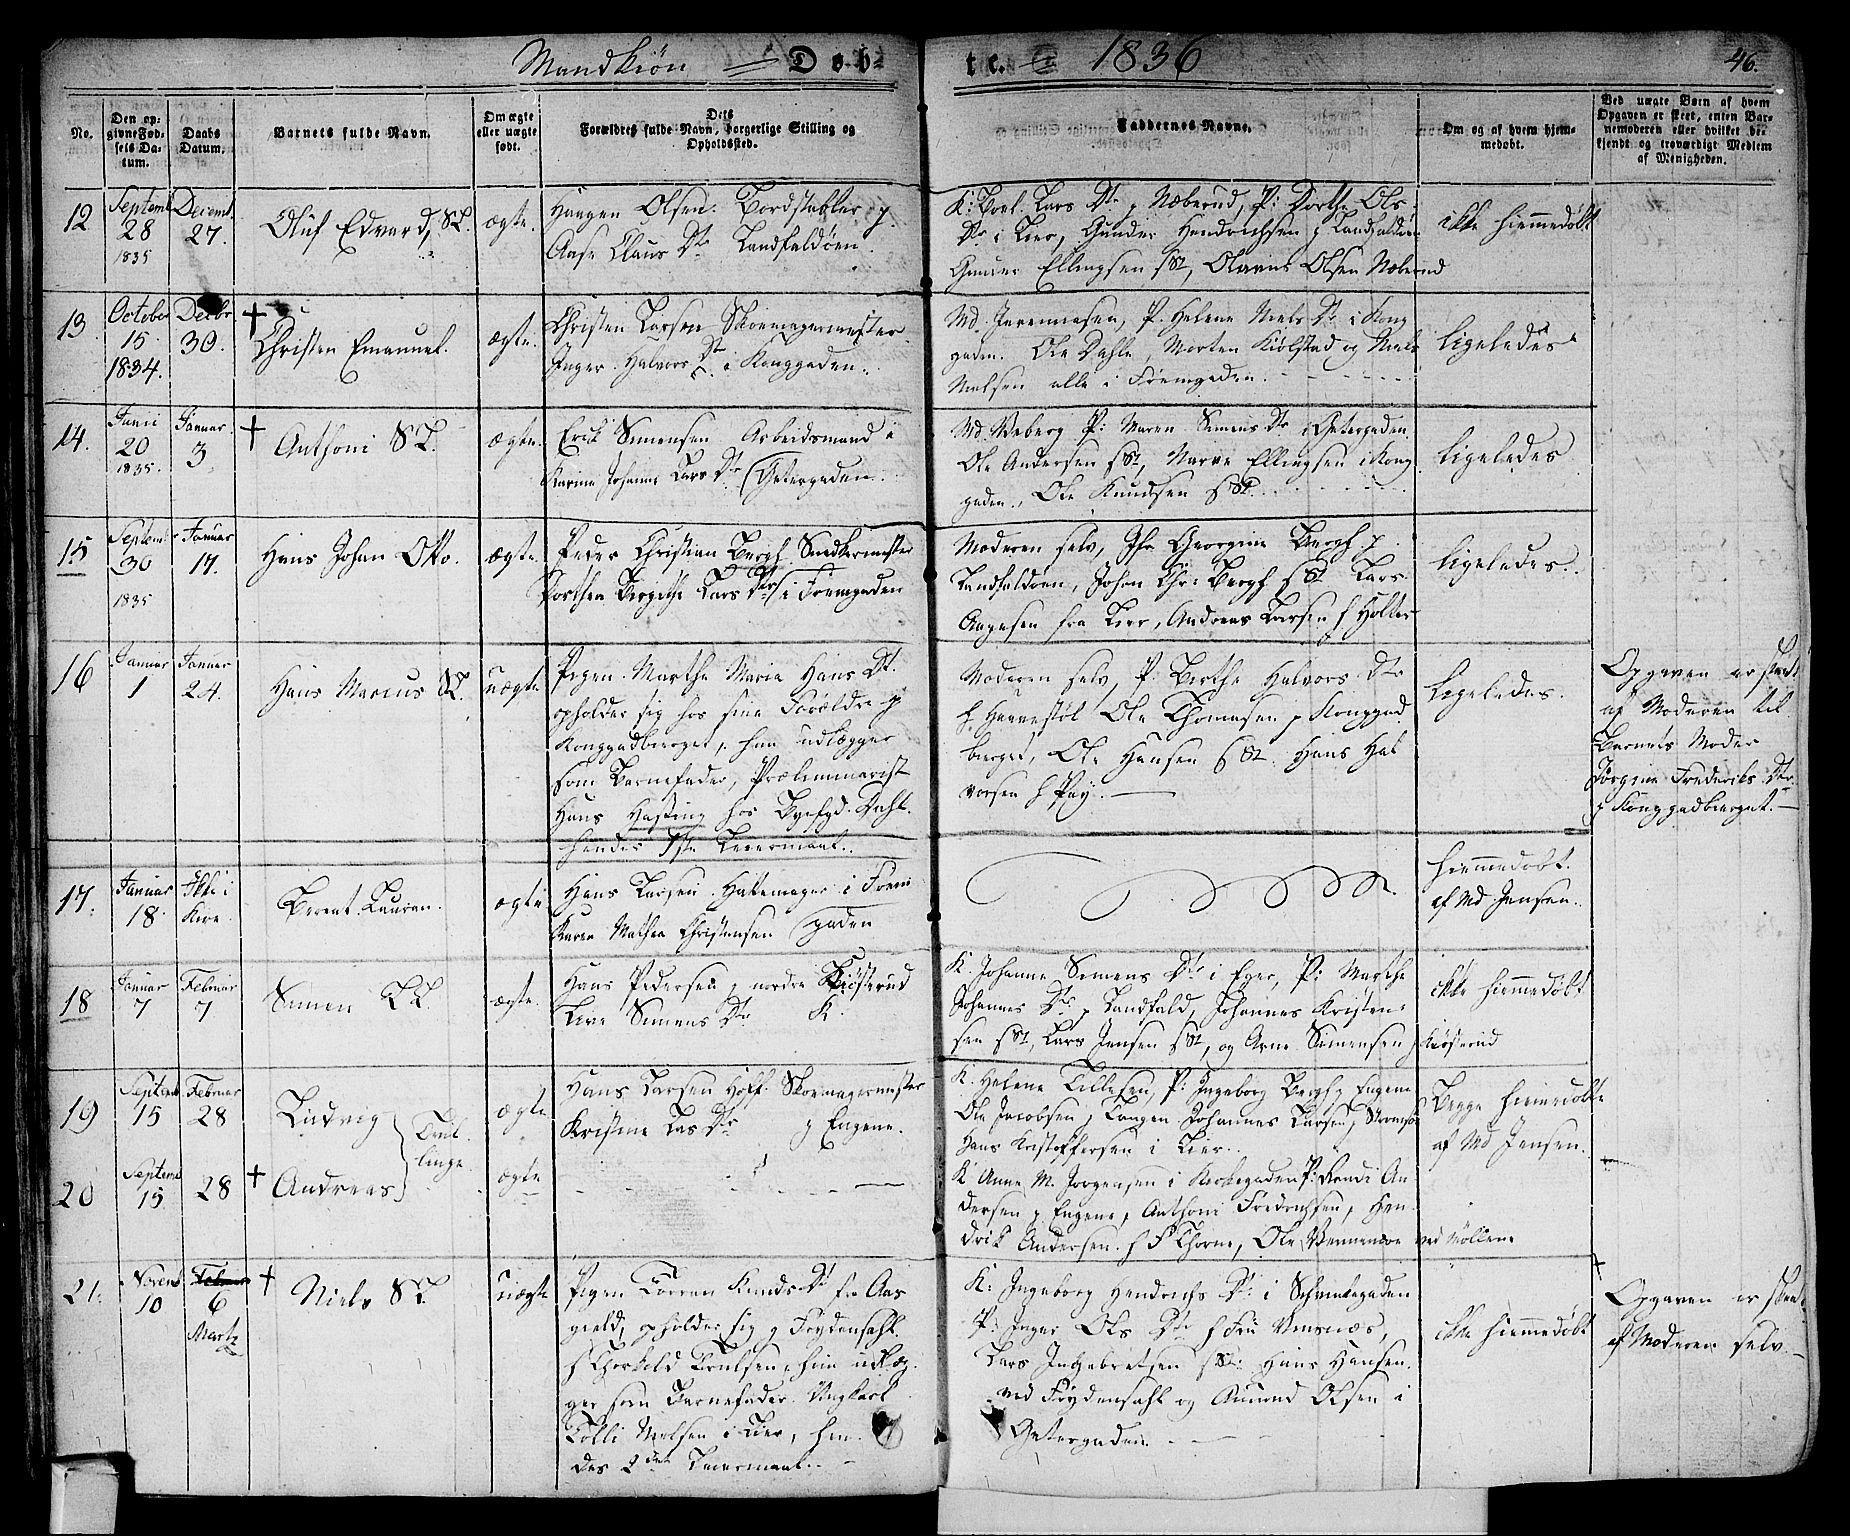 Mandkiøn Døb-
te. 1836
46.
No.
Den op-
givne Fød-
sels Da-
tum.
Daabs
Datum.
Barnets fulde Navn.
Om ægte
eller uægte
født.
Dets
Forældres fulde Navn, borgerlige Stilling og
Opholdssted.
Faddernes Navne.
Om og af hvem hjem-
medøbt.
Ved uægte Børn af hvem
Opgaven er skeet, enten Bar-
nemoderen eller hvilket be-
kjendt og troværdigt Medlem
af Menigheden.
12
Septemb
28
1835
Decemb.
27.
Oluf Edvard, SL.
ægte.
Haagen Olsen. Bordstabler p
Aase Claus Dtr Landfaldøen.
K: Lars Dtr p Næberud, P: Dorthe Ols
Dtr i Lier, Gunder Hendrichsen p Landfaldøen
Gunder Ellingsen sSt, Olavus Olsen Næberud
ikke hiemmedøbt
13.
October
15.
1834.
Decbr.
30.
Christen Emanuel.
ægte.
Christen Larsen Skoemagermester
Inger Halvors Dtr i Konggaden.
Md. Jeremiasen, P. Helene Niels Dtr i Kong
gaden. Ole Dahle, Morten Kiølstad og Niels
Nielsen alle i Fremgaden.
ligeledes
14.
Junii
20
1835.
Januar
3
Anthoni SL.
ægte.
Erik Simensen Arbeidsmand i
Karine Johanne Lars Dtr (Getergaden.
Md. Weberg P: Maren Simens Dtr i Getergaden.
Ole Andersen sSt, Ellingsen i Kong
gaden, Ole Knudsen sSt.
ligeledes
15
Septemb
30
1835
Januar
17.
Hans Johan Otto.
ægte.
Peder Christian Bergh Snedkermester
Dorthea Birgithe Lars Dtr i Fremgaden
Moderen selv, Jfr Georgine Bergh p
Landfaldøen, Johan Chr: Bergh sSt Lars
Aagesen fra Lier, Andreas Larsen f Holter
ligeledes.
16
Januar
1
Januar
24.
Hans Marcus SL.
uægte
Pigen Marthe Maria Hans Dt.
opholder sig hos sine Forældre p
Konggadberget, hun udlægger
som Barnefader, Præliminarist
Hans Hasting hos Byefgd. Dahl.
hendes 1ste Leiermaal.
Moderen selv, P: Berthe Halvors Dtr
Ole Thomesen p Konggad
berget, Ole Hansen sSt. Hans Hal
vorsen
ligeledes.
Opgaven er skeet
af Moderen til
Barnets Moder
Jørgine Frederiks Dtr
p Konggadberget.
17.
Januar
18.
Ikke i
Kirke.
Bernt Lauren.
ægte
Hans Larsen Hattemager i Frem
Karen Mathea Christensen (gaden
hiemmedøbt
af Md Jensen.
18
Januar
7
Februar
7
Simen LL.
ægte.
Hans Pedersen p nordre Kiøsterud
Live Simens Dtr K.
K. Johanne Simens Dtr i Eger, P: Marthe
Johannes Dtr p Landfald, Johannes Kristen-
sen sSt, Lars Jensen sSt, og Arne Simensen p Kiøsterud
ikke hiemmedøbt
19
Septemb
15
Februar
28
Ludvig
Tvil
linge
ægte
Hans Larsen Hoff Skoemagermester
Kristine Lars Dtr p Engene.
K. Helene Tillesen, P: Ingeborg Bergh p Engene
Ole Jacobsen p Tangen Johannes Larsen p Strømsø
Hans Kristoffersen i Lier.
Begge hiemmedøbte
af Md Jensen.
20
Septemb
15
28
Andreas
ægte
K Anne M. Jorgensen i Kirkegaden P: Randi An
dersen p Engene, Anthoni Fredrichsen, Hen
drik Andersen f F Thorne, Ole ved Møllene
21.
Novemb
10
Februar
6
Martz
Niels SL.
uægte
Pigen Torren Knuds Dtr fra Aas
gield, opholder sig p Frydensahl
f Thorkild Troelsen, hun udlæg-
ger som Barnefader Ungkarl
Tolli Nielsen i Lier, hen-
des 2det Leiermaal.
K: Ingeborg Hendrichs Dtr i Schmidegaden
P. Inger Ols Dtr f Fru
Lars Ingebretsen sSt: Hans Hansen.
ved Frydensahl og Amund Olsen i
Getergaden.
ikke hiemmedøbt
Opgaven er skeet
af Moderen selv.